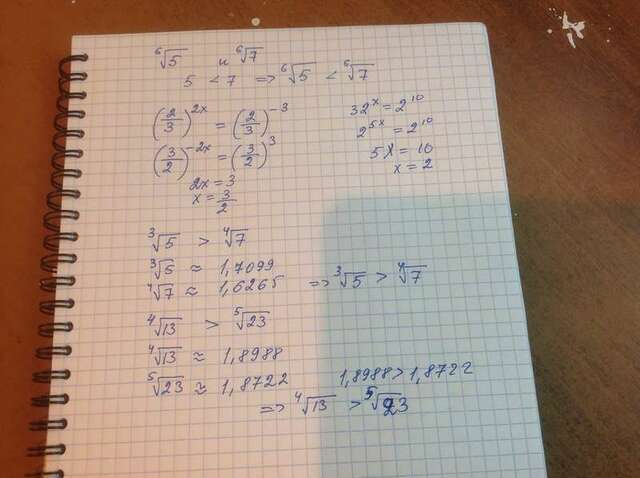 ⁶√5 и ⁶√7
5 < 7 => ⁶√5 < ⁶√7
(2/3)^2x = (2/3)^-3
(3/2)^-2x = (3/2)^3
2x = 3
x = 3/2
32^x = 2^10
2^5x = 2^10
5x = 10
x = 2
³√5 > ⁴√7
³√5 ≈ 1,7099
⁴√7 ≈ 1,6265 => ³√5 > ⁴√7
⁴√13 > ⁵√23
⁴√13 ≈ 1,8988
⁵√23 ≈ 1,8722 1,8988 > 1,8722
=> ⁴√13 > ⁵√23